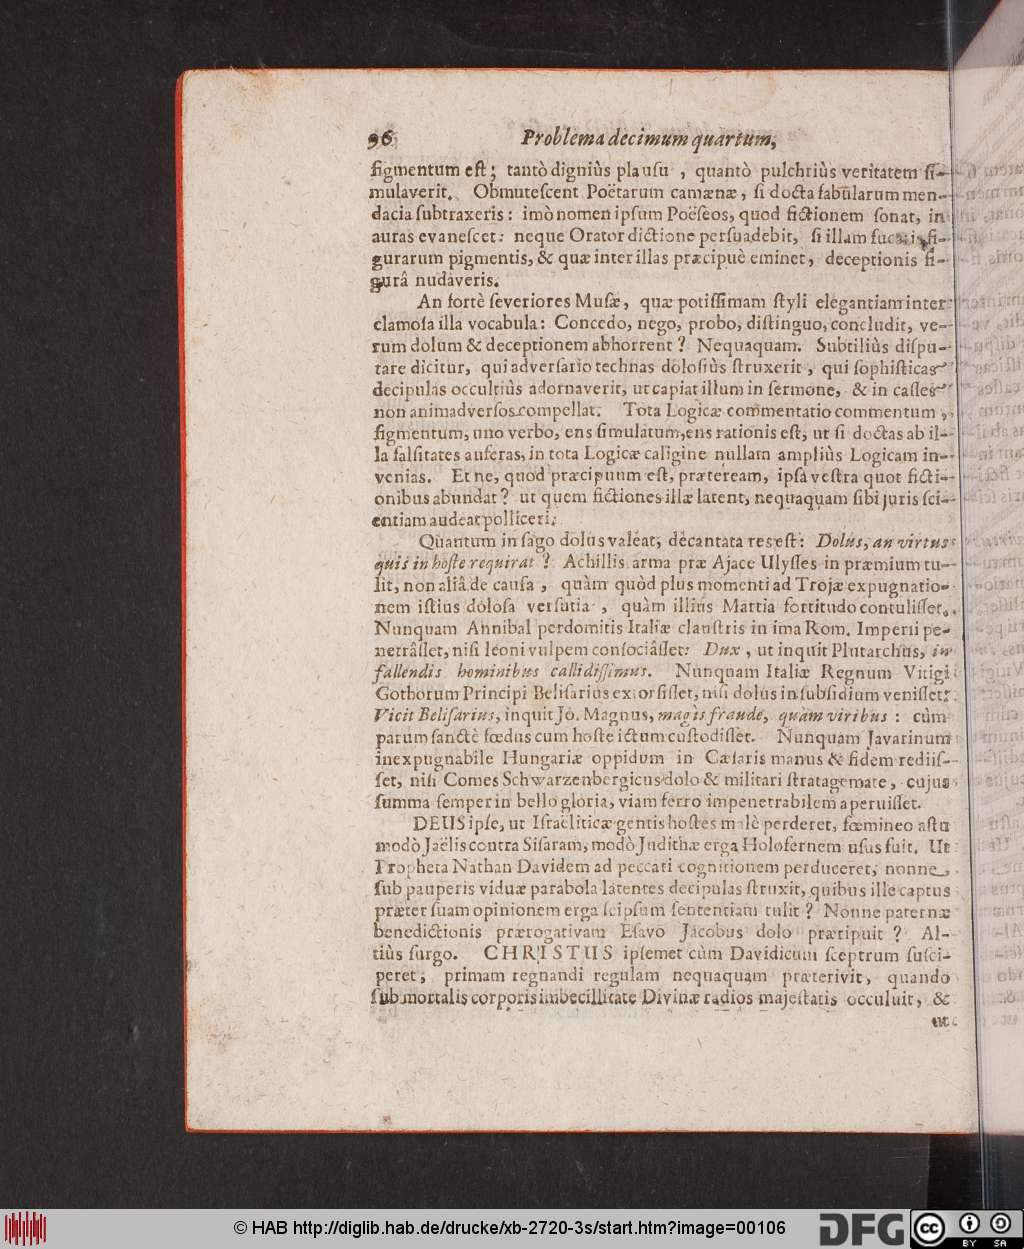 96 Problema decimum quartum,
figmentum eſt; tantò digniùs plauſu, quantò pulchriùs veritatem ſi-
mulaverit. Obmuteſcent Poëtarum camænæ, ſi docta fabularum men-
dacia ſubtraxeris: imò nomen ipſum Poëſeos, quod fictionem ſonat, in
auras evaneſcet: neque Orator dictione perſuadebit, ſi illam fucatis fi-
gurarum pigmentis, & quæ inter illas præcipuè eminet, deceptionis fi-
gurâ nudaveris.
An fortè ſeveriores Muſæ, quæ potiſſimam ſtyli elegantiam inter
clamoſa illa vocabula: Concedo, nego, probo, diſtinguo, concludit, ve-
rum dolum & deceptionem abhorrent? Nequaquam. Subtiliùs diſpu-
tare dicitur, qui adverſario technas doloſiùs ſtruxerit, qui ſophiſticas
decipulas occultiùs adornaverit, ut capiat illum in ſermone, & in caſſes
non animadverſos compellat. Tota Logicæ commentatio commentum,
figmentum, uno verbo, ens ſimulatum, ens rationis eſt, ut ſi doctas ab il-
la falſitates auferas, in tota Logicæ caligine nullam ampliùs Logicam in-
venias. Et ne, quod præcipuum eſt, præteream, ipſa veſtra quot ficti-
onibus abundat? ut quem fictiones illæ latent, nequaquam ſibi juris ſci-
entiam audeat polliceri.
Quantum in ſago dolus valeat, decantata res eſt: Dolus, an virtus
quis in hoſte requirat? Achillis arma præ Ajace Ulyſſes in præmium tu-
lit, non aliâ de cauſa, quàm quòd plus momenti ad Trojæ expugnatio-
nem iſtius doloſa verſutia, quàm illius Martia fortitudo contuliſſet.
Nunquam Annibal perdomitis Italiæ clauſtris in ima Rom. Imperii pe-
netrâſſet, niſi leoni vulpem conſociâſſet: Dux, ut inquit Plutarchus, in
fallendis hominibus callidiſſimus. Nunquam Italiæ Regnum Vitigi
Gothorum Principi Beliſarius extorſiſſet, niſi dolus in ſubſidium veniſſet:
Vicit Beliſarius, inquit Jo. Magnus, magis fraude, quàm viribus: cùm
parum ſanctè fœdus cum hoſte ictum cuſtodiſſet. Nunquam Javarinum
inexpugnabile Hungariæ oppidum in Cæſaris manus & fidem rediiſ-
ſet, niſi Comes Schwarzenbergicus dolo & militari ſtratagemate, cujus
ſumma ſemper in bello gloria, viam ferro impenetrabilem aperuiſſet.
DEUS ipſe, ut Iſraëliticæ gentis hoſtes malè perderet, fœmineo aſtu
modò Jaëlis contra Siſaram, modò Judithæ erga Holofernem uſus fuit. Ut
Propheta Nathan Davidem ad peccati cognitionem perduceret, nonne
ſub pauperis viduæ parabola latentes decipulas ſtruxit, quibus ille captus
præter ſuam opinionem erga ſeipſum ſententiam tulit? Nonne paternæ
benedictionis prærogativam Eſavo Jacobus dolo præripuit? Al-
tiùs ſurgo. CHRISTUS ipſemet cùm Davidicum ſceptrum ſuſci-
peret, primam regnandi regulam nequaquam præterivit, quando
ſub mortalis corporis imbecillitate Divinæ radios majeſtatis occuluit, &
ut
© HAB http://diglib.hab.de/drucke/xb-2720-3s/start.htm?image=00106
DFG
cc BY SA